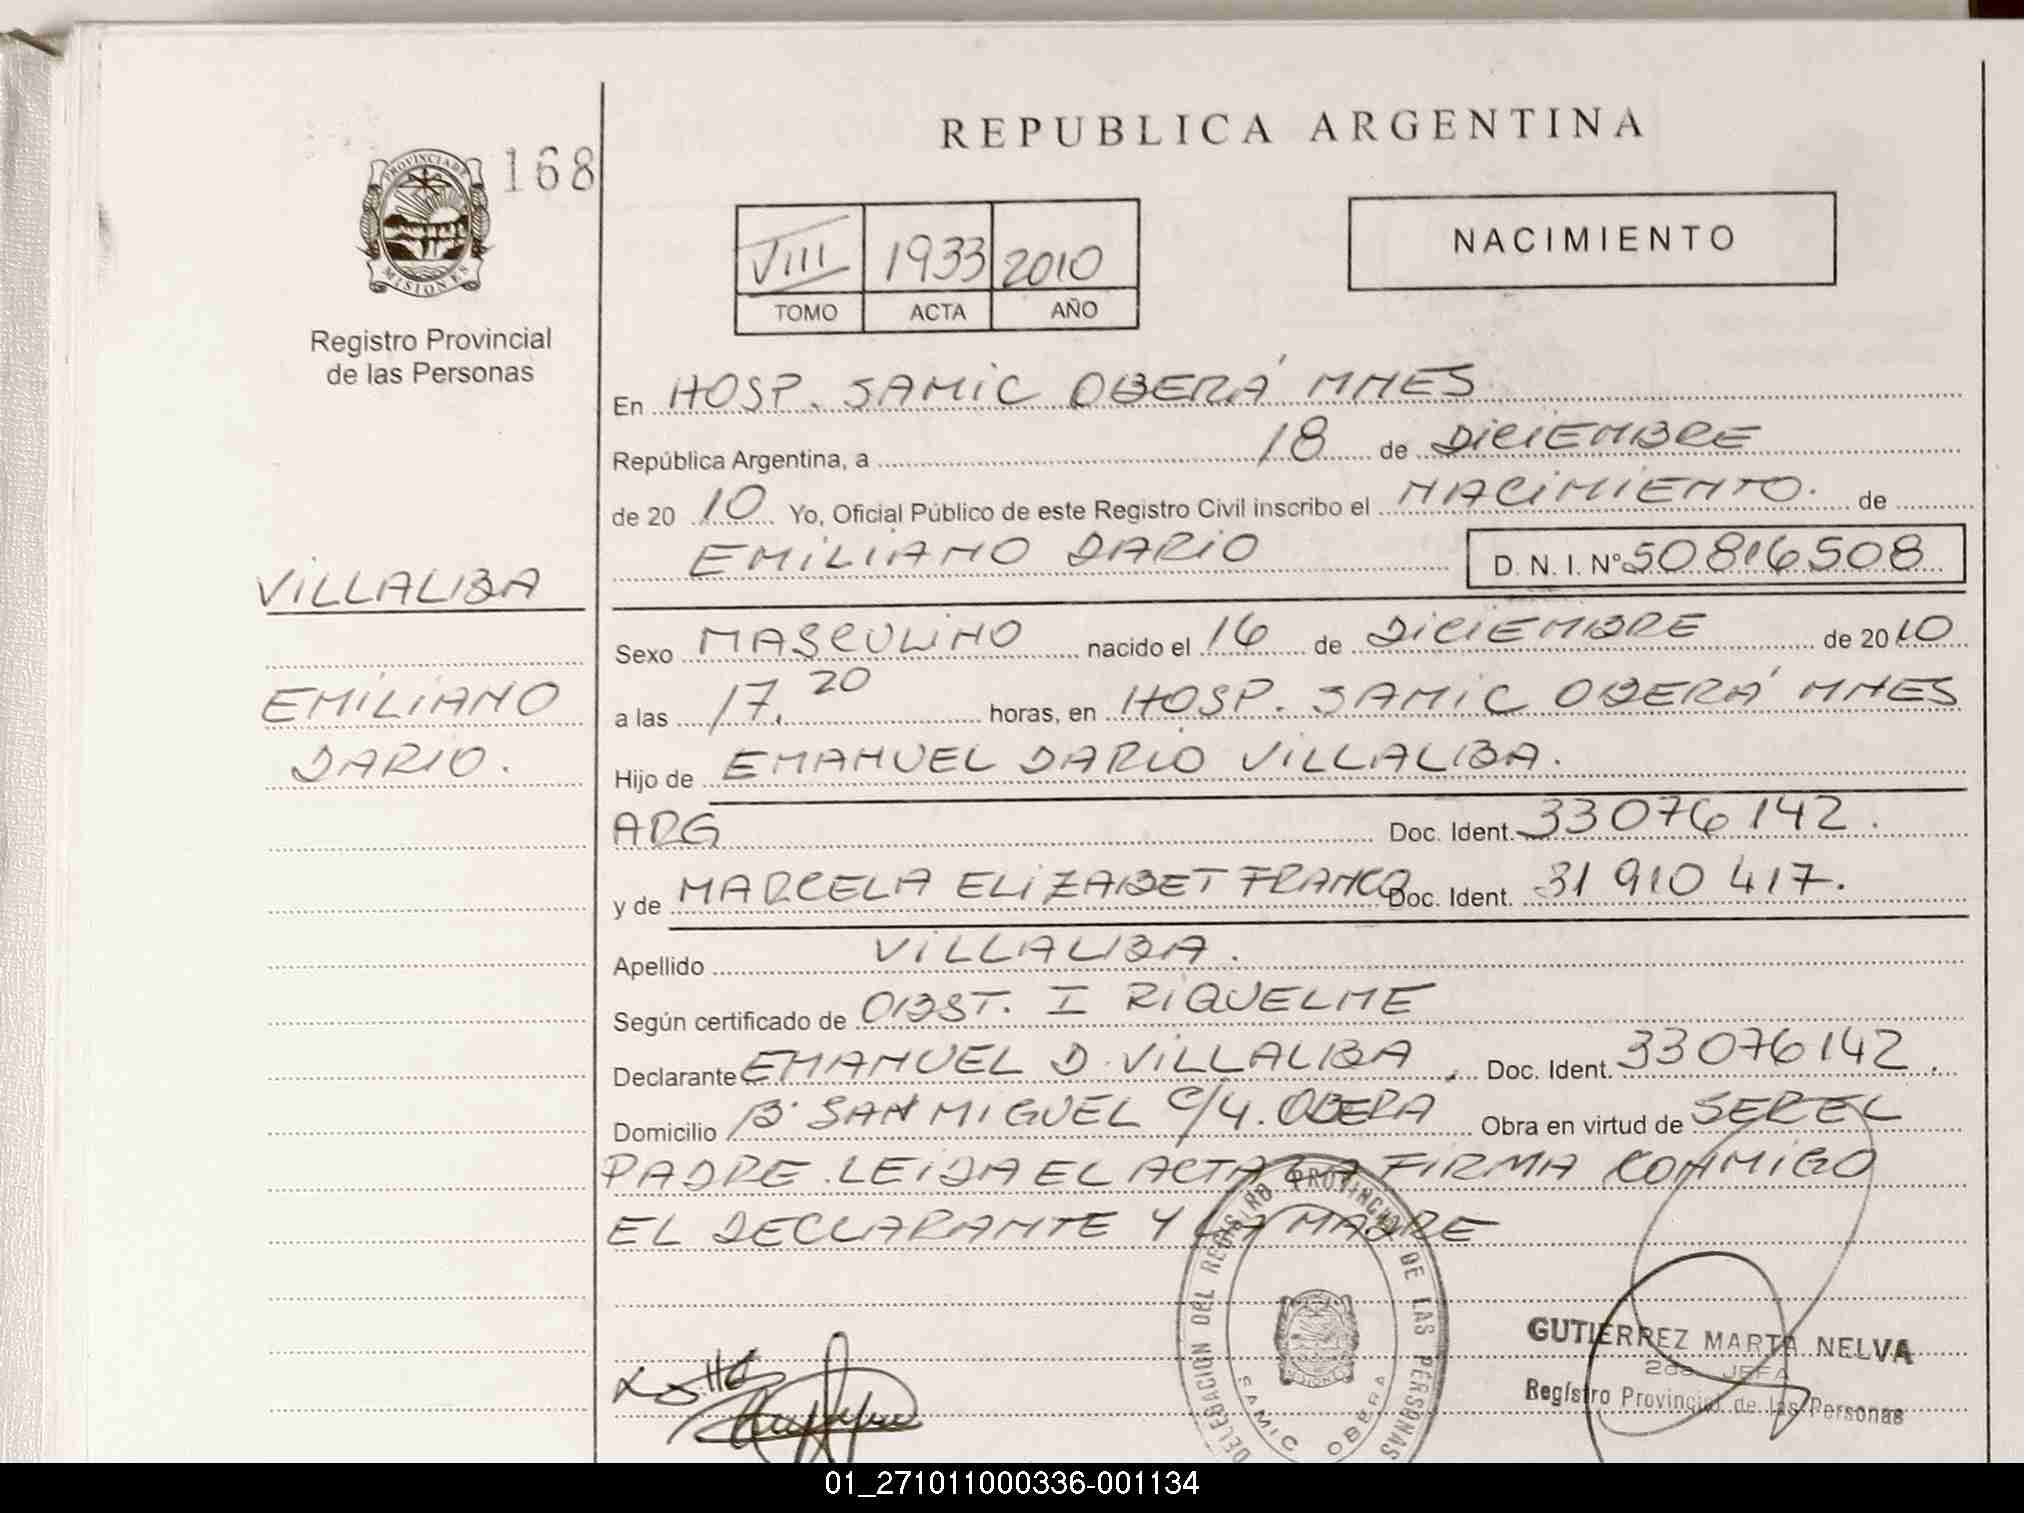 REPUBLICA ARGENTINA
168
PROVINCIA DE
MISIONES
Registro Provincial
de las Personas
VIII 1933 2010
TOMO ACTA AÑO
NACIMIENTO
En HOSP. SAMIC OBERÁ MNES
República Argentina, a 18 de DICIEMBRE
de 20 10 Yo, Oficial Público de este Registro Civil inscribo el NACIMIENTO. de
EMILIANO DARIO D. N. I. Nº 50816508
VILLALBA
EMILIANO
DARIO.
Sexo MASCULINO nacido el 16 de DICIEMBRE de 2010
a las 17.20 horas, en HOSP. SAMIC OBERÁ MNES
Hijo de EMANUEL DARIO VILLALBA.
ARG Doc. Ident. 33076142.
y de MARCELA ELIZABET FRANCO Doc. Ident. 31 910 417.
Apellido VILLALBA.
Según certificado de OBST. I RIQUELME
Declarante EMANUEL D. VILLALBA, Doc. Ident. 33076142.
Domicilio Bº SAN MIGUEL C/4. OBERA Obra en virtud de SER EL
PADRE. LEIDA EL ACTA LA FIRMA CONMIGO
EL DECLARANTE Y LA MADRE
DELEGACION DEL REGISTRO PROVINCIAL DE LAS PERSONAS
SAMIC OBERA
GUTIERREZ MARTA NELVA
2da JEFA
Registro Provincial de las Personas
01_271011000336-001134